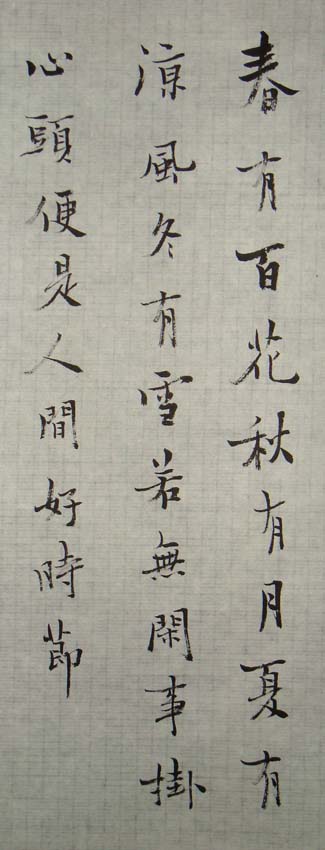 春有百花秋有月夏有
涼風冬有雪若無閑事掛
心頭便是人間好時節